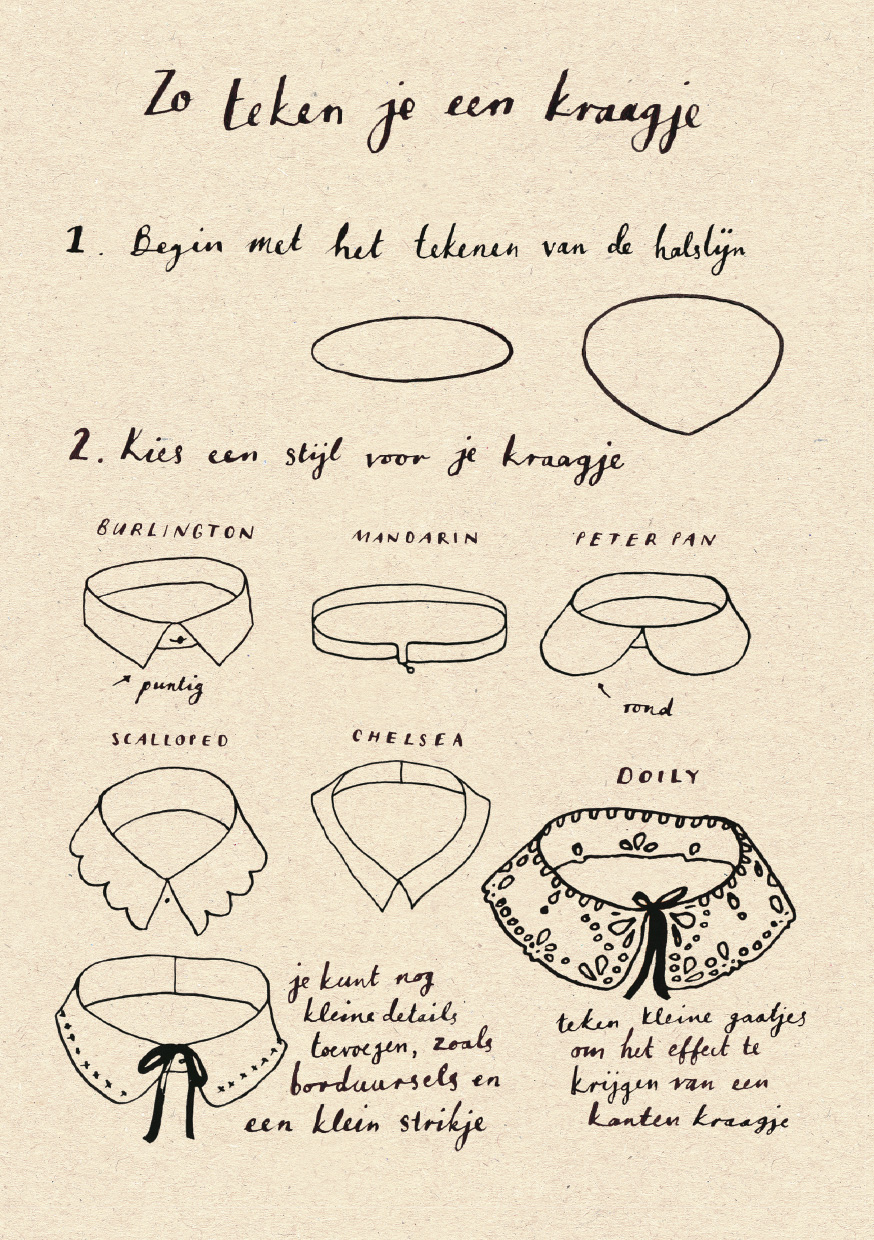 Zo teken je een kraagje
1. Begin met het tekenen van de halslijn
2. Kies een stijl voor je kraagje
BURLINGTON
MANDARIN
PETER PAN
puntig
rond
SCALLOPED
CHELSEA
DOILY
je kunt nog
kleine details
toevoegen, zoals
borduursels en
een klein strikje
teken kleine gaatjes
om het effect te
krijgen van een
kanten kraagje